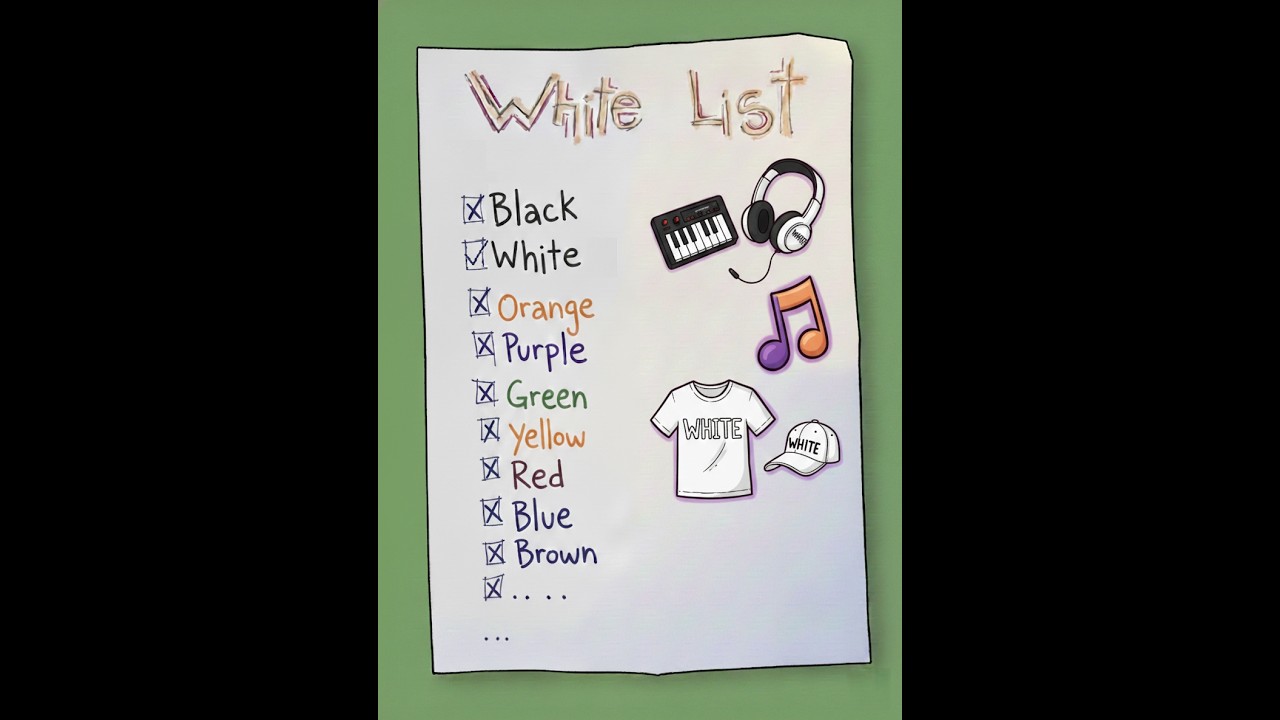 White List
Black
White
Orange
Purple
Green
Yellow
Red
Blue
Brown
. . . .
...
WHITE
WHITE
WHITE